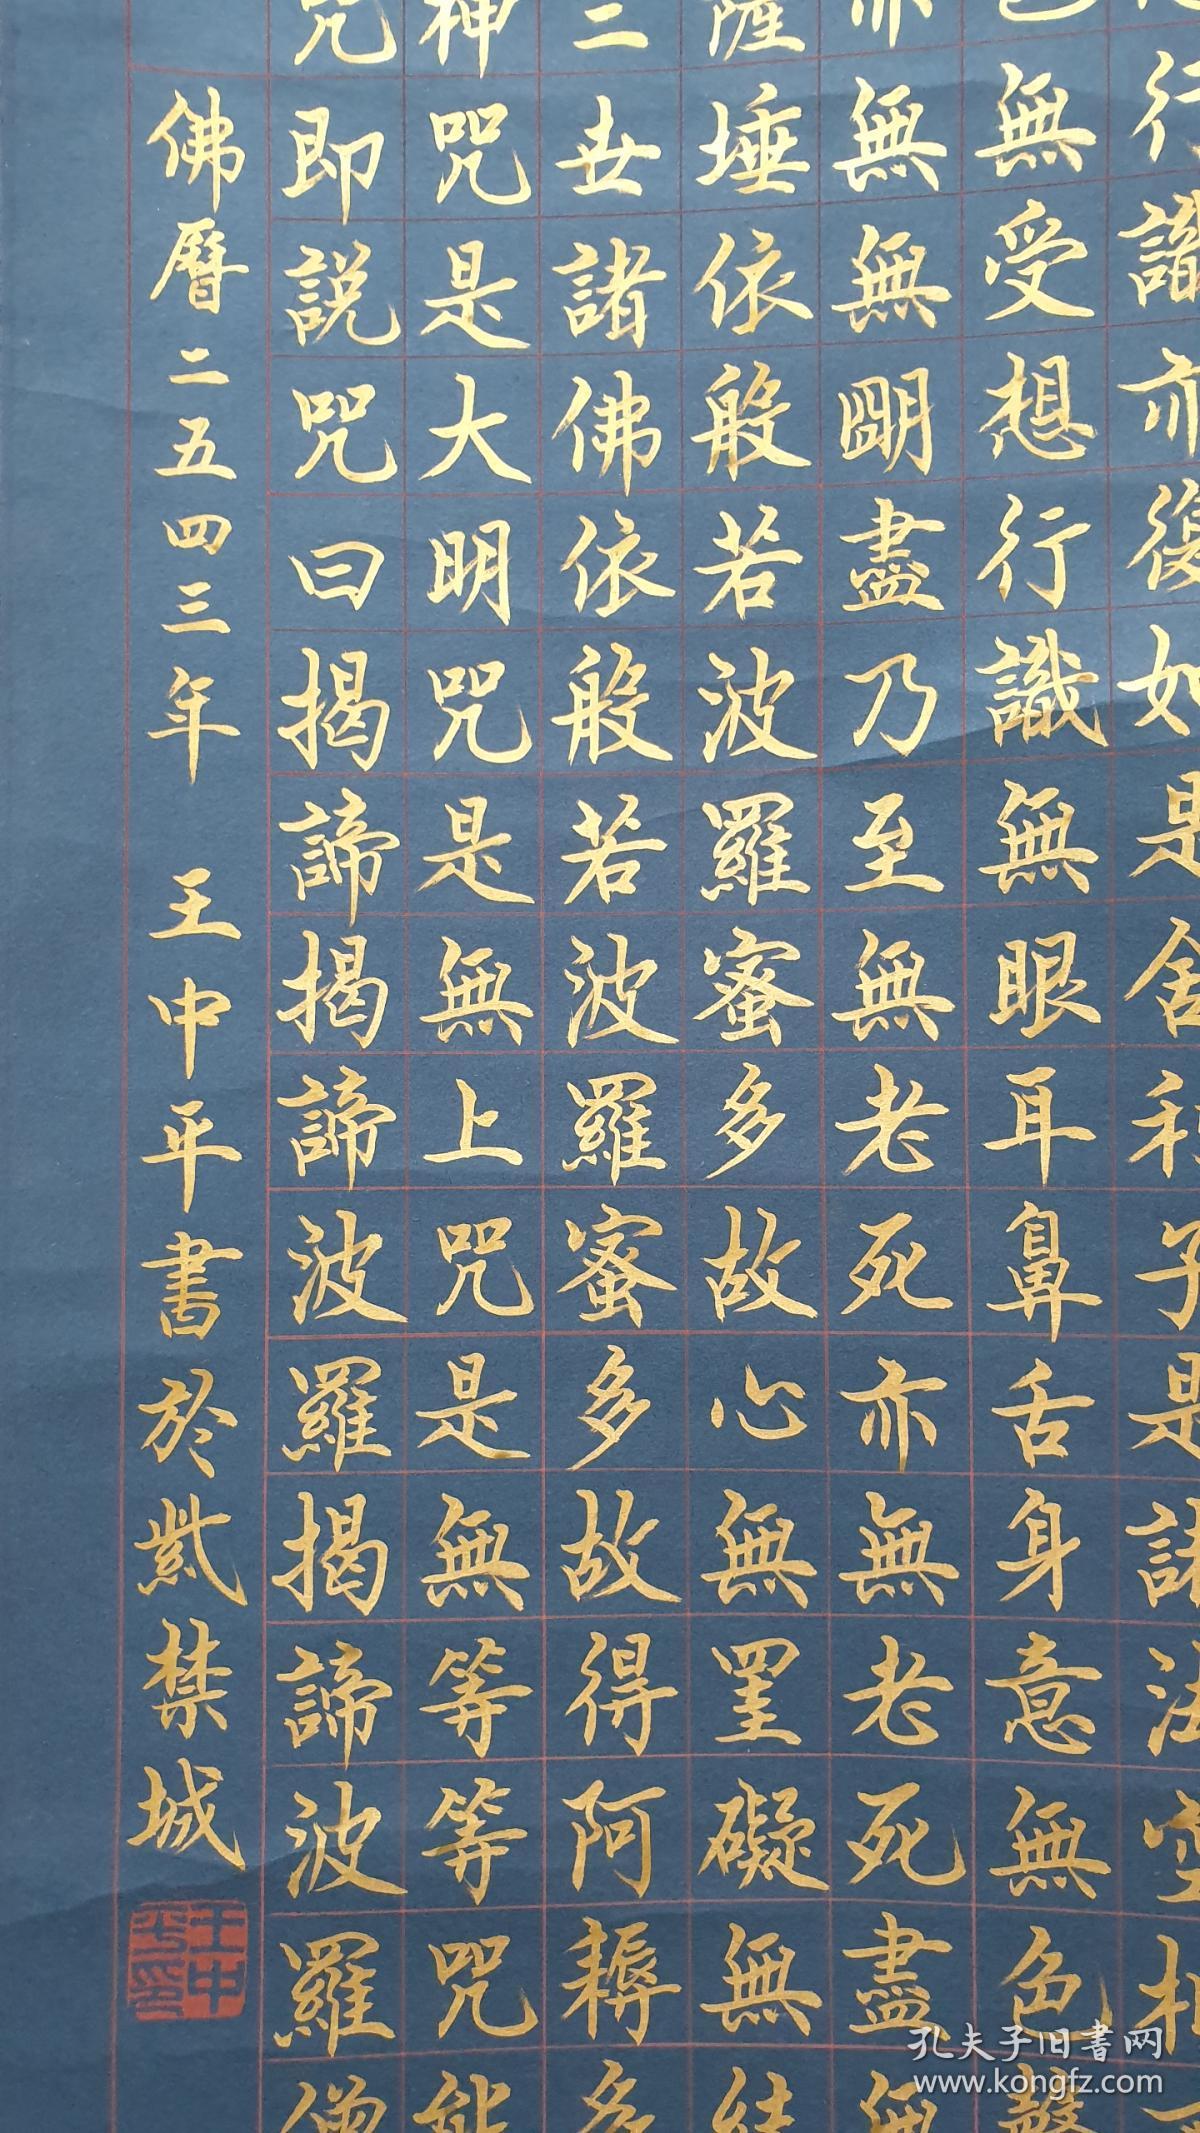 行識亦復如是舍利子是諸法空相
色無受想行識無眼耳鼻舌身意無色聲
亦無無明盡乃至無老死亦無老死盡無
薩埵依般若波羅蜜多故心無罣礙無
三世諸佛依般若波羅蜜多故得阿耨多
神咒是大明咒是無上咒是無等等咒能
咒即説咒曰揭諦揭諦波羅揭諦波羅僧
佛曆二五四三年 王中平書於紫禁城
王中平印
孔夫子旧书网
www.kongfz.com